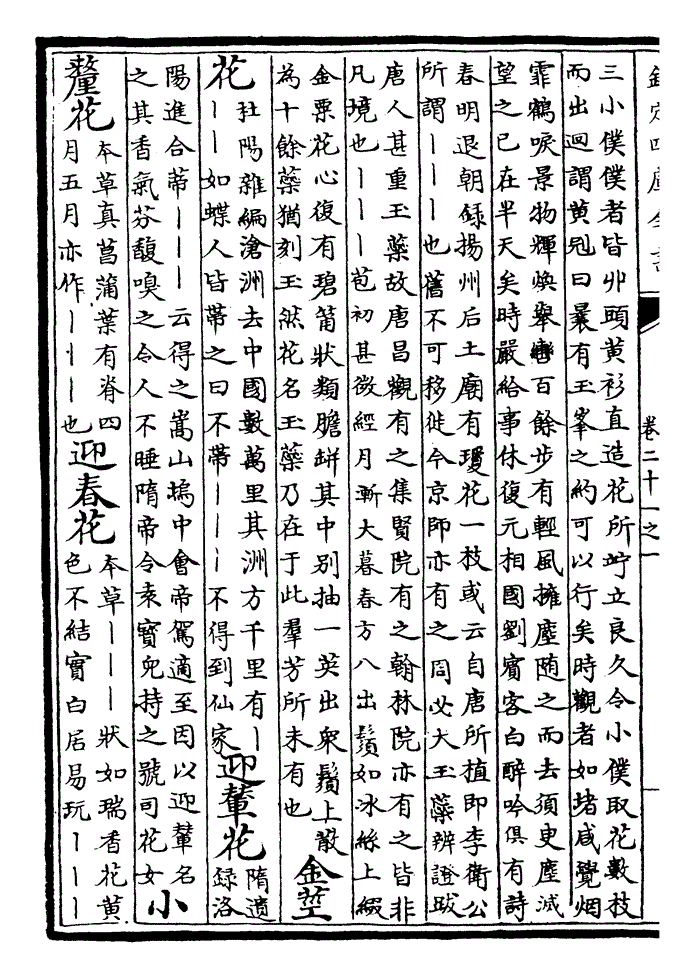 欽定四庫全書
卷二十一之一
三小僕僕者皆丱頭黄衫直造花所竚立良久令小僕取花數技
而出迴謂黄冠曰曩有玉峯之約可以行矣時觀者如堵咸覺烟
霏鶴唳景物輝煥舉轡百餘步有輕風擁塵随之而去須臾塵滅
望之已在半天矣時嚴給事休復元相國劉賓客白醉吟俱有詩
春明退朝録揚州后土廟有瓊花一枝或云自唐所植即李衛公
所謂丨丨丨也舊不可移徙今京師亦有之 周必大玉蘂辨證跋
唐人甚重玉蘂故唐昌觀有之集賢院有之翰林院亦有之皆非
凡境也丨丨丨苞初甚微經月漸大暮春方八出鬚如冰絲上綴
金粟花心復有碧筩狀類膽缾其中别抽一英出衆鬚上散
為十餘蘂猶刻玉然花名玉蘂乃在于此羣芳所未有也
金莖
花
杜陽雜編滄洲去中國數萬里其洲方千里有丨
丨丨如蝶人皆帶之曰不帶丨丨丨不得到仙家
迎輦花
隋遺
録洛
陽進合蒂丨丨丨云得之嵩山塢中會帝駕適至因以迎輦名
之其香氣芬馥嗅之令人不睡隋帝令袁寶兒持之號司花女
小
釐花
本草真菖蒲葉有脊四
月五月亦作丨丨丨也
迎春花
本草丨丨丨狀如瑞香花黄
色不結實白居易玩丨丨丨